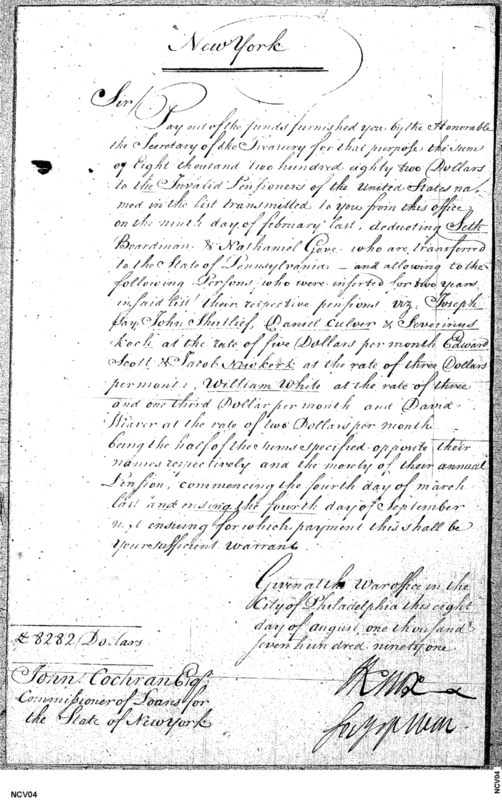 New York
Sir/
Pay out of the funds furnished you by the Honorable
the Secretary of the Treasury for that purpose the sum
of Eight thousand two hundred eighty two Dollars
to the Invalid Pensioners of the United States na-
med in the list transmitted to you from this office
on the ninth day of february last, deducting Seth
Boardman & Nathaniel Gove who are transferred
to the State of Pennsylvania – and allowing to the
following Persons, who were inserted for two years
in said list their respective pensions viz, Joseph
Jay, John Shutlief, Daniel Culver & Severinus
Koch at the rate of five Dollars per month Edward
Scott & Jacob Newkerk at the rate of three Dollars
per month, William White at the rate of three
and one third Dollar per month and David
at the rate of two Dollars per month
being the half of the sums specified opposite their
names respectively and the moiety of their annual
Pension, commencing the fourth day of march
last and ending the fourth day of September
next ensuing for which payment this shall be
your sufficient warrant
Given at the War office in the
City of Philadelphia this eight
day of august, one thousand
seven hundred ninety one
8282/Dollars
John Cochran Esqr.
Commissioner of Loans for
the State of New York
H Knox
Secy of War
NCV04
NCV04